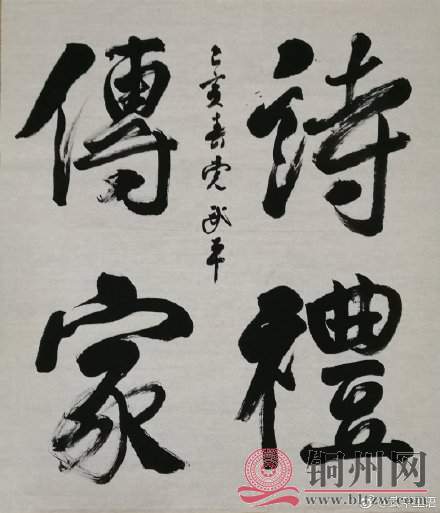 詩禮
傳家
己亥春党武平
铜州网
www.bltzw.com